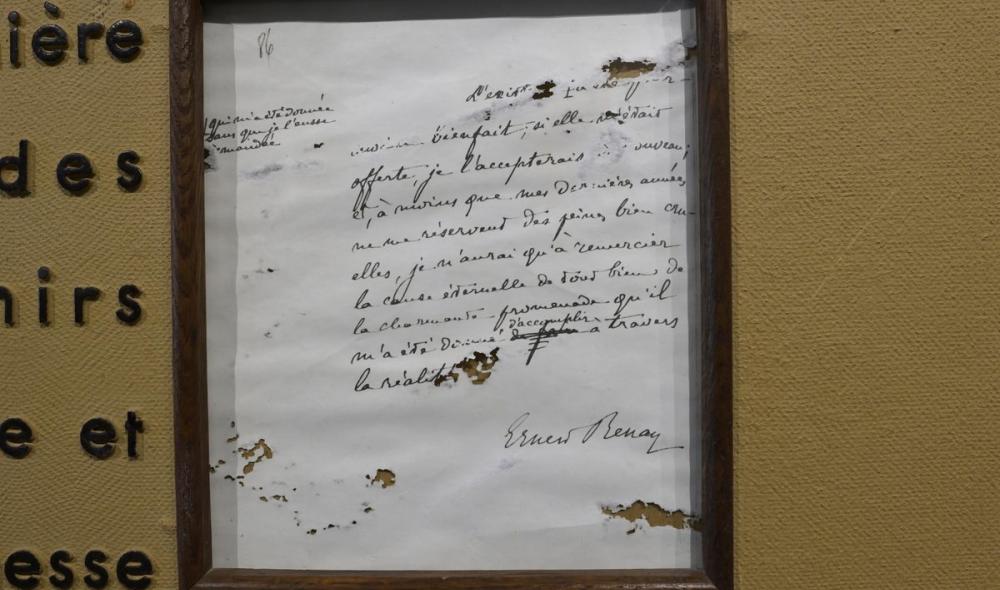 ière
des
nirs
e et
esse
86
qui m'a été donnée
sans que je l'eusse
demandée
L'exist
bienfait ; si elle m'était
offerte, je l'accepterais
et, à moins que mes dernières années
ne me réservent des peines bien cru-
elles, je n'aurai qu'à remercier
la cause éternelle de tout bien de
la charmante promenade qu'il
m'a été donné d'accomplir à travers
la réalité
Ernest Renan